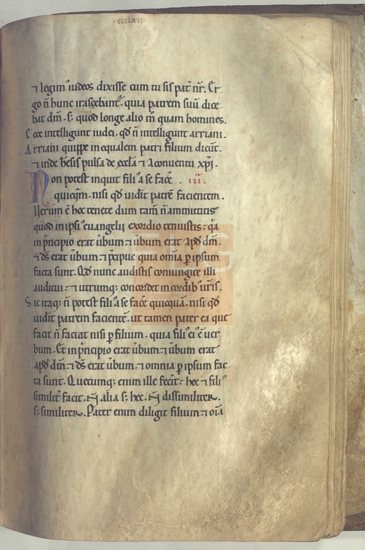 ⁊ legim᷒ iudeos dixisse cum tu sis pat̄ nr̄. Er
go n̄ hunc irascebant᷒. quia patrem suū dice
bat dm̄. s; quod longe alio m̊ quam homines.
Ecce intelligunt iudei. qd̄ n̄ intelligunt arriani.
Arriani quippe inequalem patri filium dicūt.
⁊ inde heresis pulsa de eccl̄a
Non potest inquit fili᷒ a se facē
quicqm̄. nisi qd̄ uidit patrē facientem.
Uerum ē hoc tenete dum tam̄ n̄ ammittatis
quod in ipsi᷒ euangelii exordio tenuistis: q̄a
in principio erat uerbum ⁊ uerbum erat apd̄ dm̄.
⁊ ds̄ erat uerbum: ⁊ precipue quia omīa ꝑ ipsum
facta sunt. Qd̄ nunc audistis coniungite illi
auditui: ⁊ utrumq; concordet in cordib᷒ ur̄is.
Sic itaq: n̄ potest fili᷒ a se facē quicquā. nisi qd̄
uidit patrem facientē. ut tamen pater ea que
facit n̄ faciat nisi ꝑ filium. quia fili᷒ ei᷒ ē uer
bum. Et in principio erat uerbum: ⁊ uerbum erat
apd̄ dm̄: ⁊ ds̄ erat uerbum: ⁊ omnia ꝑ ipsum fac
ta sunt. Quecumq; enim ille fecit: hec ⁊ fili᷒
similiter facit. Nō alia s; hec. Nō dissimiliter.
s; similiter. Pater enim diligit filium: ⁊ om̄ia